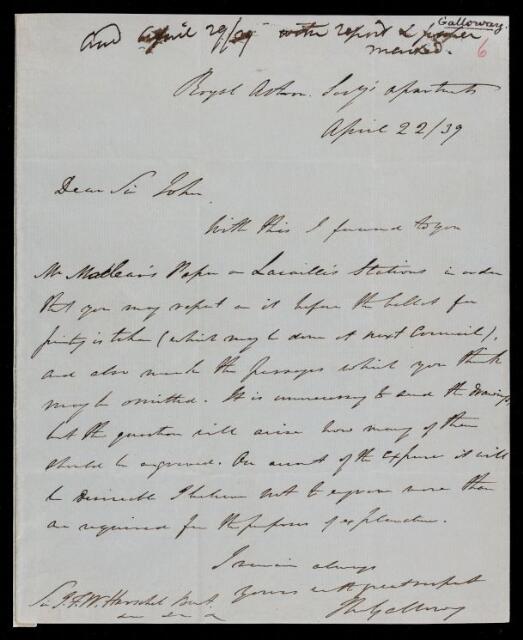 Galloway
And April 29/39 with report & paper
marked.
6
Royal Astron. Socy's apartments
April 22/39
Dear Sir John
With this I forward to you
Mr Maclear's Paper on Lacaille's Stations in order
that you may report on it before the ballot for
printing is taken (which may be done at next Council),
and also mark the passages which you think
may be omitted. It is unnecessary to send the drawings,
but the question will arise how many of them
should be engraved. On account of the expense it will
be desirable I believe not to engrave more than
are required for the purposes of explanation.
I remain always
Yours with great respect
Th Galloway
Sir J.F.W. Herschel Bart.